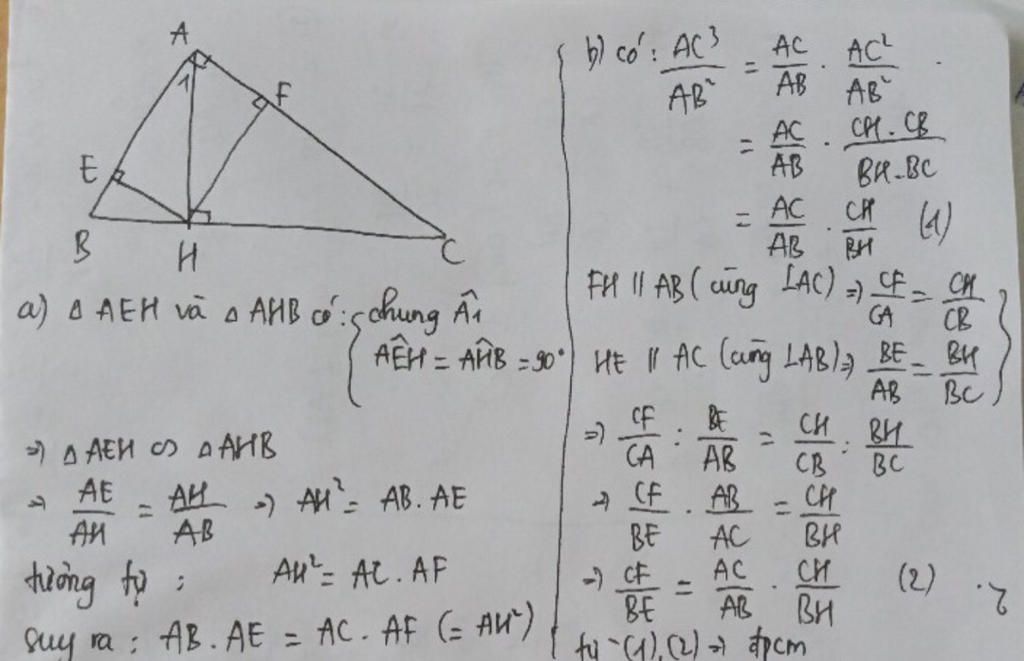 A
1
F
E
B
H
C
a) Δ AEH và Δ AHB có: { chung Â1
AÊH = AĤB = 90°
=> Δ AEH ∽ Δ AHB
=> AE/AH = AH/AB => AH² = AB. AE
tương tự : AH² = AC. AF
suy ra : AB. AE = AC. AF (= AH²)
b) có: AC³/AB² = AC/AB . AC²/AB²
= AC/AB . CH. CB/BH. BC
= AC/AB . CH/BH (1)
FH // AB (cùng ⊥AC) => CF/CA = CH/CB
HE // AC (cùng ⊥AB) => BE/AB = BH/BC }
=> CF/CA : BE/AB = CH/CB : BH/BC
=> CF/BE . AB/AC = CH/BH
=> CF/BE = AC/AB . CH/BH (2)
từ (1), (2) => đpcm